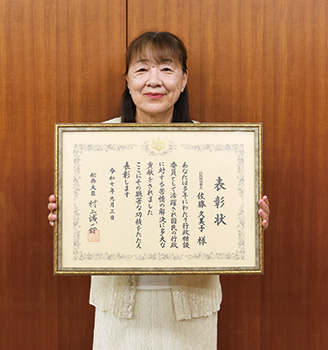 表彰状
行政相談委員
佐藤久美子 様
あなたは多年にわたり行政相談
委員として活躍され国民の行政
に対する苦情の解決に多大な
貢献をされました
ここにその顕著な功績をたたえ
表彰します
令和七年九月三日
総務大臣 村上誠一郎